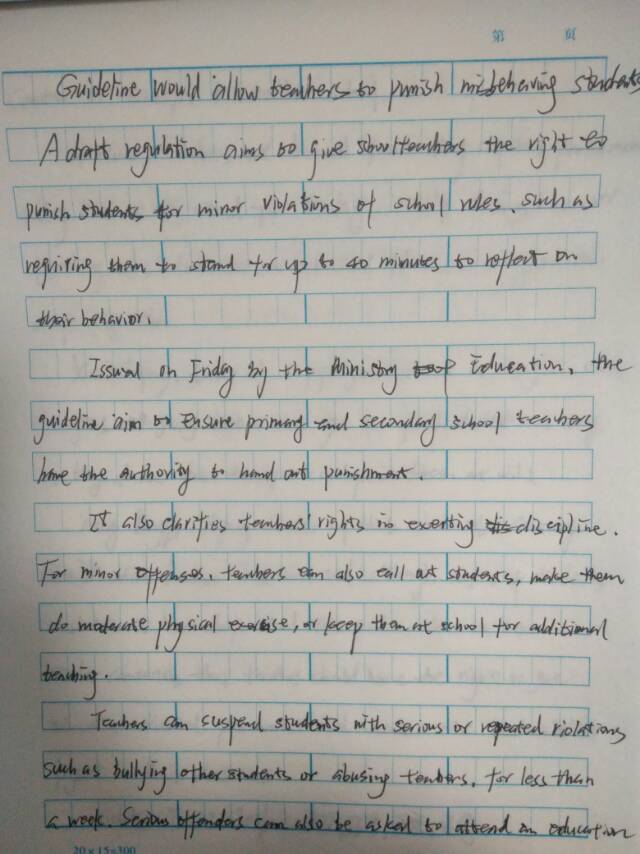 第 页
Guideline would allow teachers to punish misbehaving students
A draft regulation aims to give schoolteachers the right to
punish students for minor violations of school rules, such as
requiring them to stand for up to 40 minutes to reflect on
their behavior.
Issued on Friday by the Ministry of Education, the
guideline aim to ensure primary and secondary school teachers
have the authority to hand out punishment.
It also clarifies teachers' rights in exerting discipline.
For minor offenses, teachers can also call out students, make them
do moderate physical exercise, or keep them at school for additional
teaching.
Teachers can suspend students with serious or repeated violations
such as bullying other students or abusing teachers, for less than
a week. Serious offenders can also be asked to attend an education
20×15=300